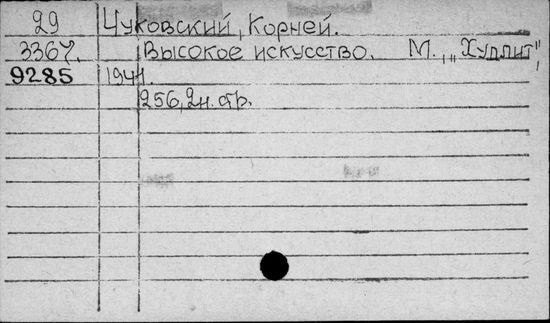 29 Чуковский, Корней.
3367. Высокое искусство. М., „Худлит",
9285 1941.
256, 2н. стр.